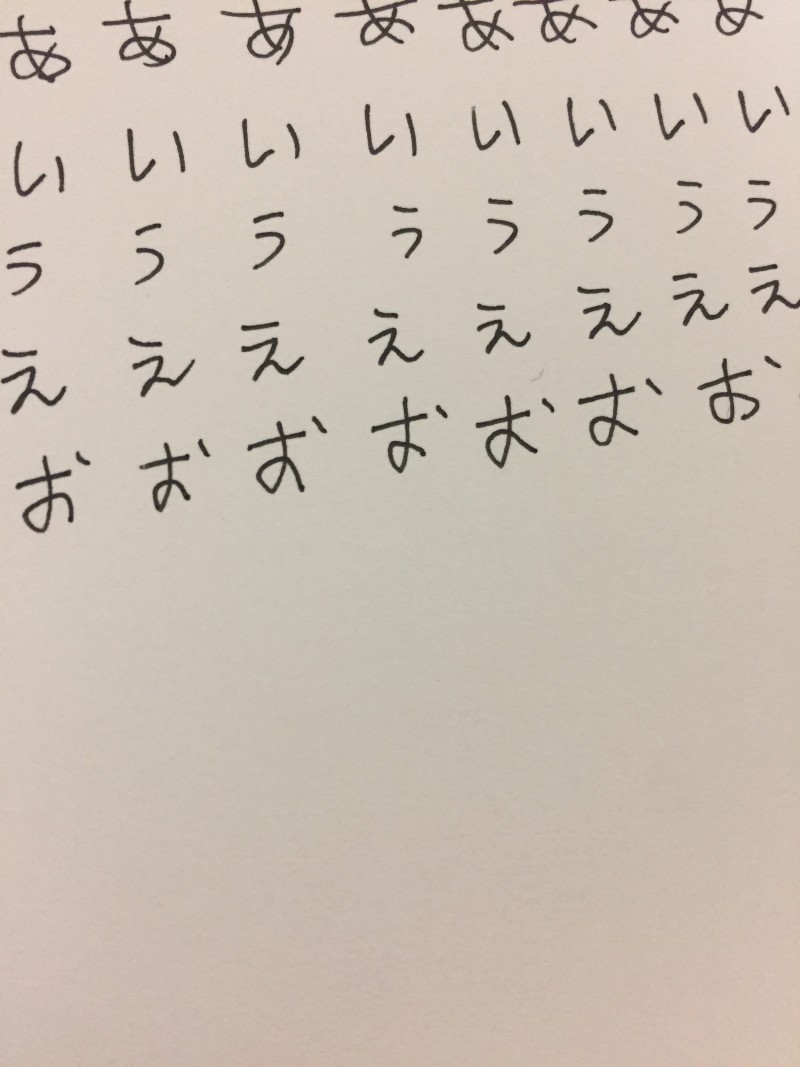 あ あ あ あ あ あ あ あ
い い い い い い い い
う う う う う う う う
え え え え え え え え
お お お お お お お